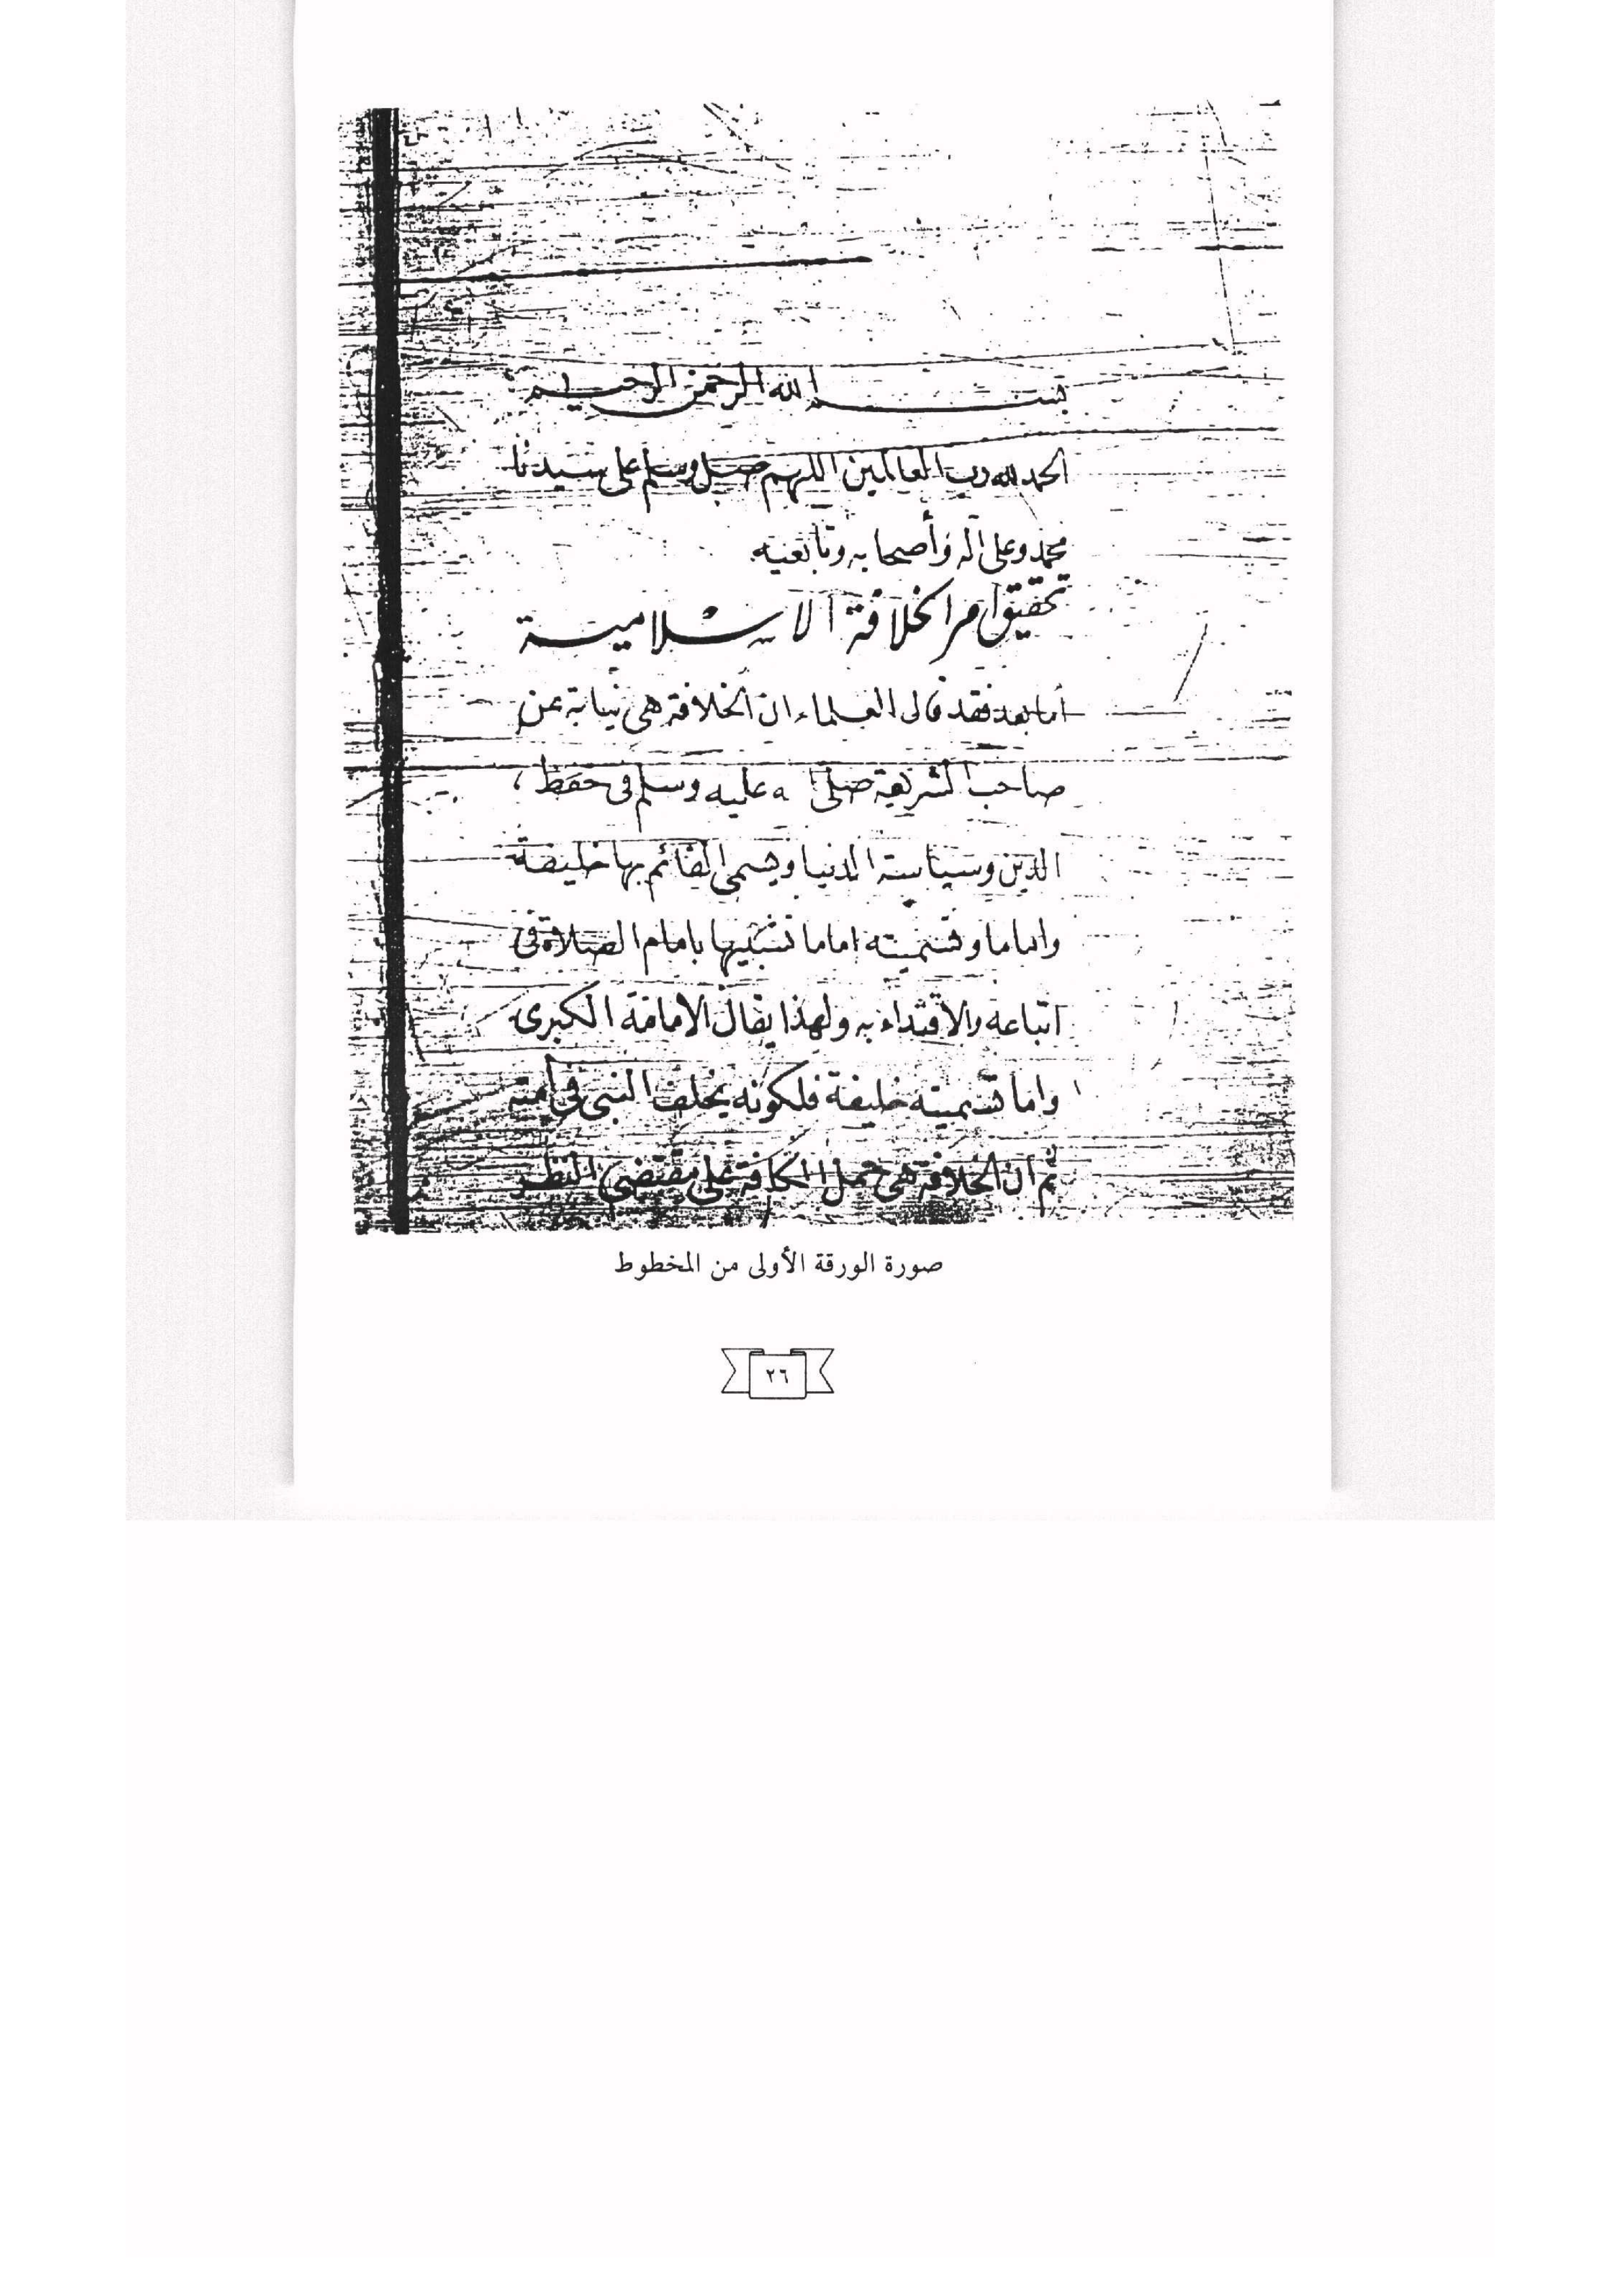 بسم الله الرحمن الرحيم
الحمد لله رب العالمين اللهم صل وسلم على سيدنا
محمد وعلى آله وأصحابه وتابعيه
تحقيق امر الخلافة الاسلامية
أما بعد فقد قال العلماء ان الخلافة هى نيابة عن
صاحب الشريعة صلى ه عليه وسلم فى حفظ
الدين وسياسة الدنيا ويسمى القائم بها خليفة
واماما وتسميته اماما تشبيها بامام الصلاة فى
اتباعه والاقتداء به ولهذا يقال الامامة الكبرى
واما تسميته خليفة فلكونه يخلف النبى فى أمته
ثم ان الخلافة هى حمل الكافة على مقتضى النظر
صورة الورقة الأولى من المخطوط
٢٦